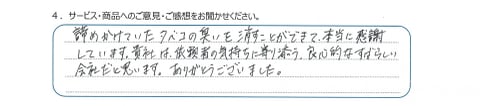 4．サービス・商品へのご意見・ご感想をお聞かせください。
諦めかけていたタバコの臭いを消すことができて、本当に感謝
しています。貴社は、依頼者の気持ちに寄り添う、良心的なすばらしい
会社だと思います。ありがとうございました。